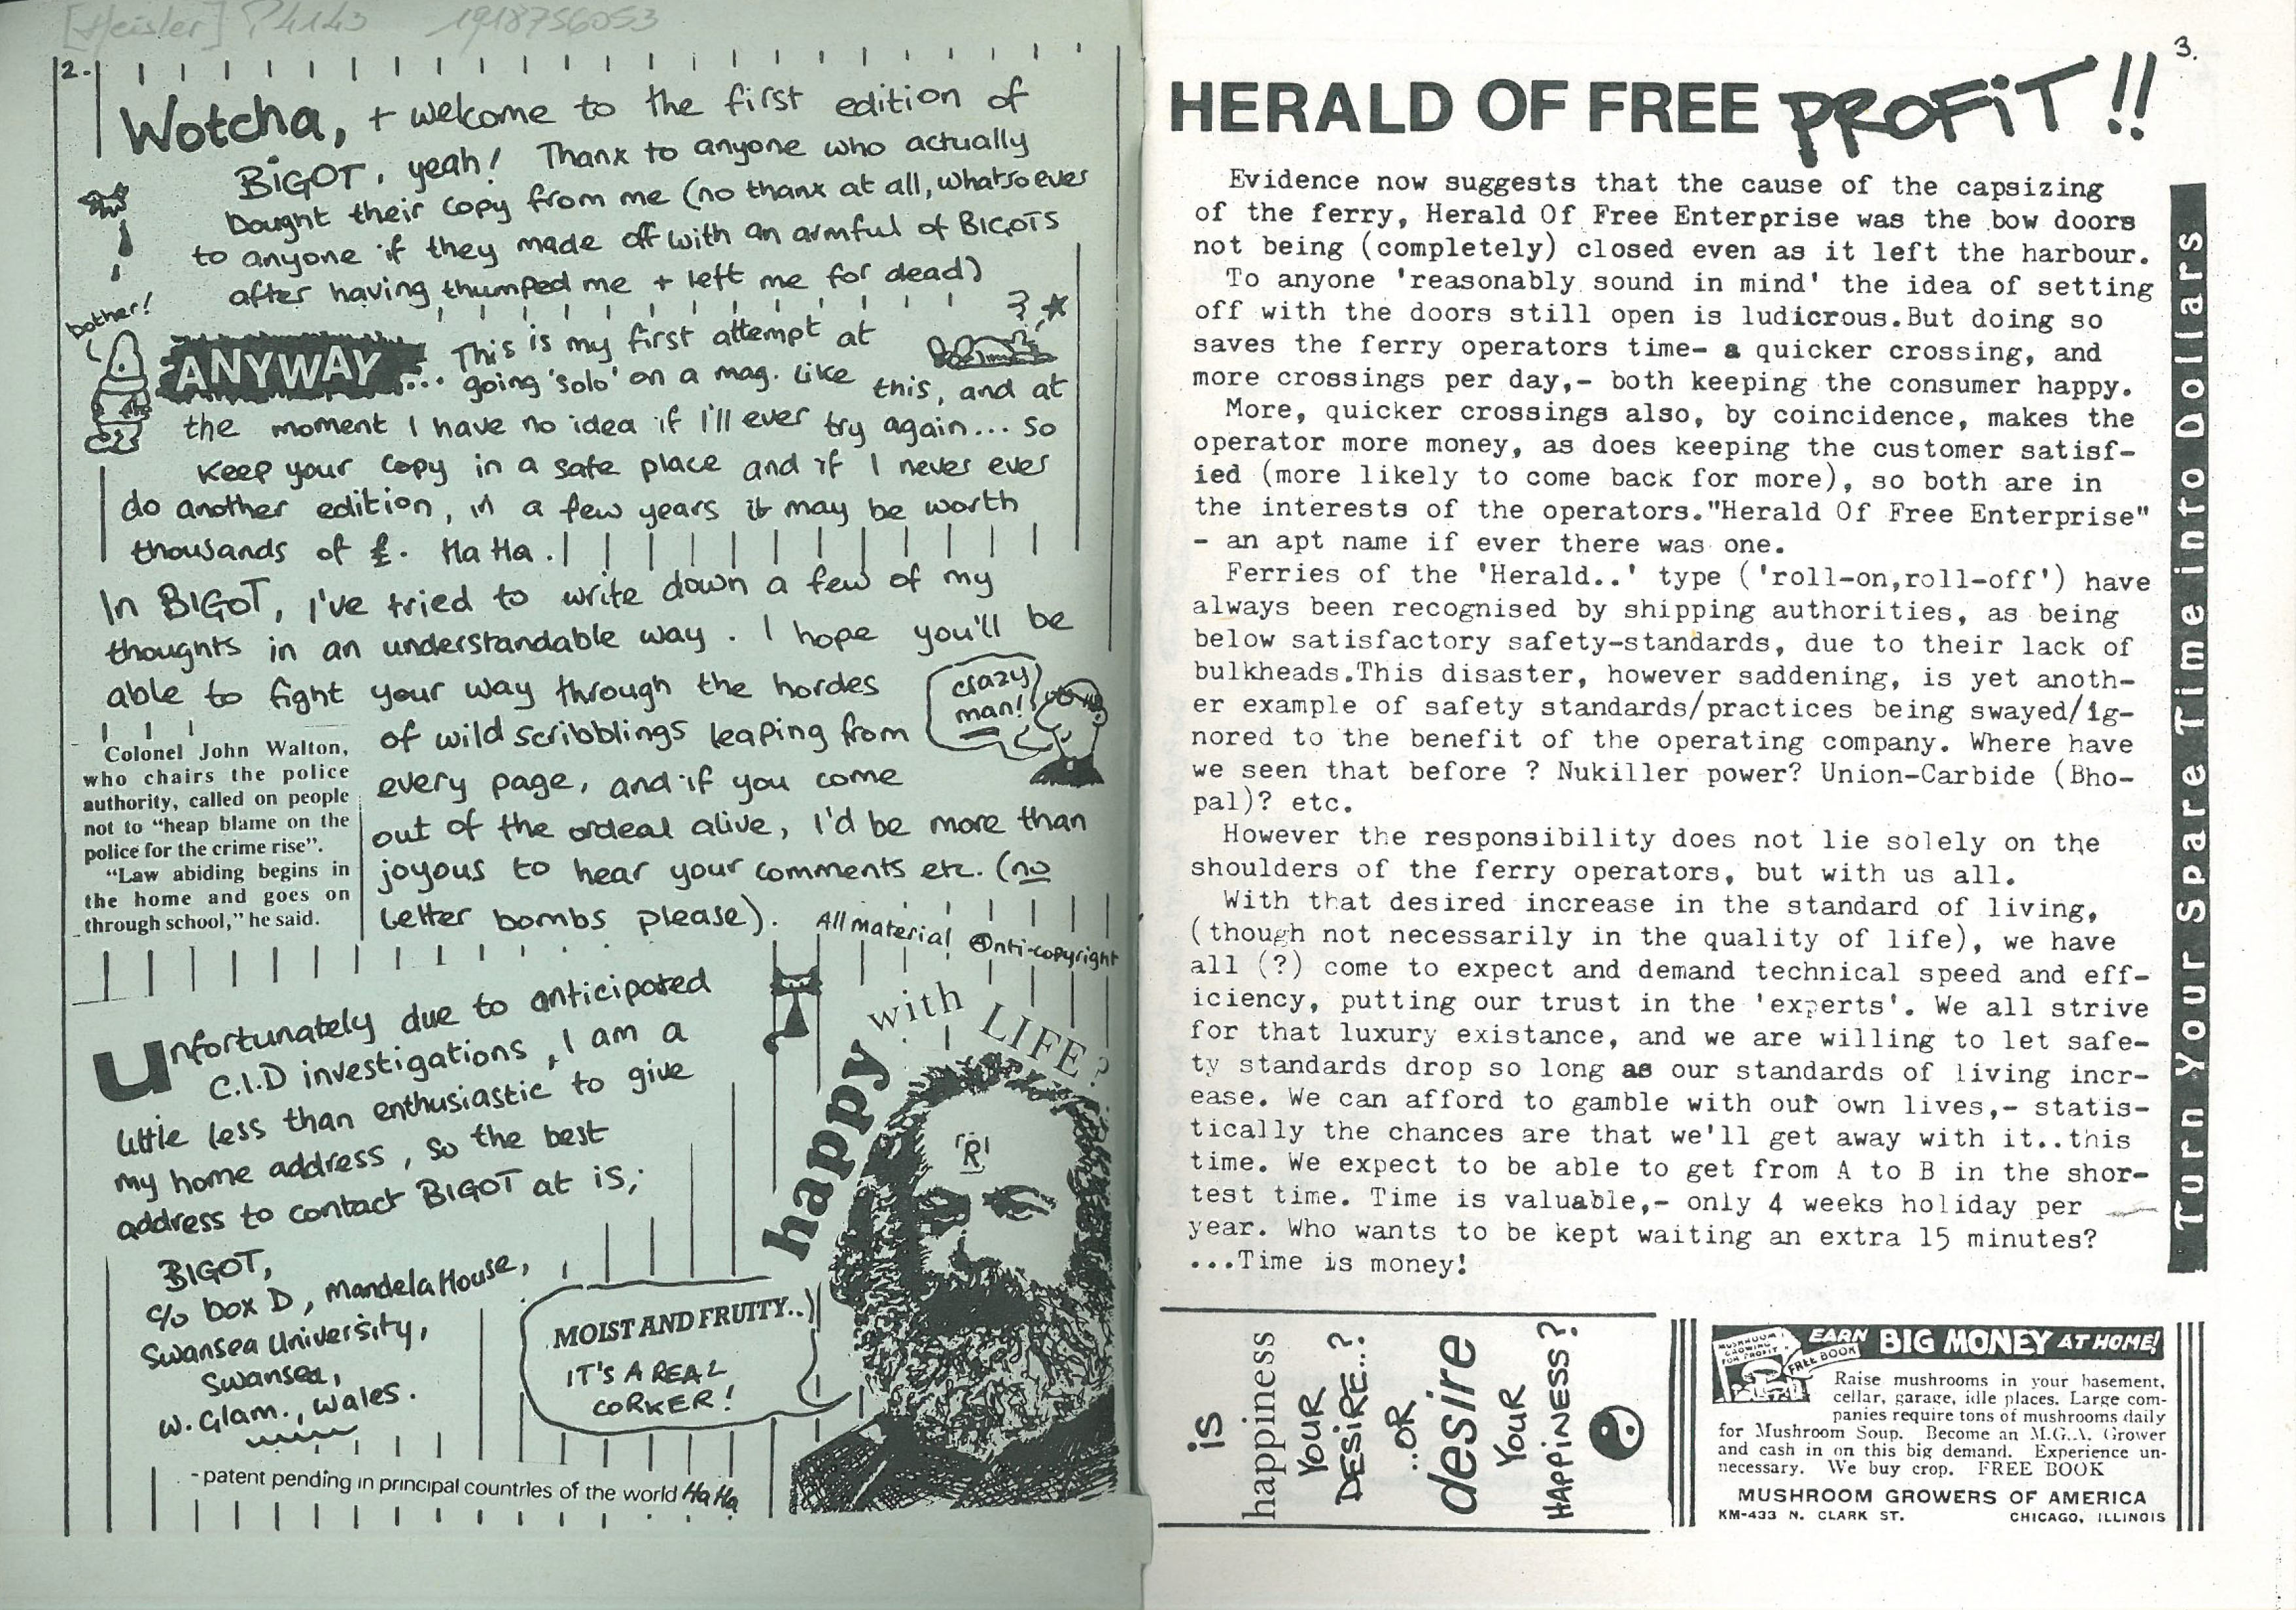 [Heisler] P4143 1918756053
2.
Wotcha, + welcome to the first edition of
BiGOT, yeah! Thanx to anyone who actually
bought their copy from me (no thanx at all, whatsoever
to anyone if they made off with an armful of BIGOTS
after having thumped me + left me for dead)
bother!
ANYWAY... This is my first attempt at
going 'solo' on a mag. like this, and at
the moment I have no idea if I'll ever try again... so
keep your copy in a safe place and if I never ever
do another edition, in a few years it may be worth
thousands of £. Ha Ha.
In BIGOT, I've tried to write down a few of my
thoughts in an understandable way. I hope you'll be
able to fight your way through the hordes
of wild scribblings leaping from
every page, and if you come
out of the ordeal alive, I'd be more than
joyous to hear your comments etc. (no
letter bombs please).
crazy
man!
Colonel John Walton,
who chairs the police
authority, called on people
not to "heap blame on the
police for the crime rise".
"Law abiding begins in
the home and goes on
through school," he said.
All material Anti-copyright
Unfortunately due to anticipated
C.I.D investigations, I am a
little less than enthusiastic to give
my home address, so the best
address to contact BIGOT at is;
BIGOT,
c/o box D, Mandela House,
Swansea University,
Swansea,
W. Glam., Wales.
happy with LIFE?
'R'
MOIST AND FRUITY..
IT'S A REAL
CORKER!
- patent pending in principal countries of the world Ha Ha
3.
HERALD OF FREE PROFiT!!
Evidence now suggests that the cause of the capsizing
of the ferry, Herald Of Free Enterprise was the bow doors
not being (completely) closed even as it left the harbour.
To anyone 'reasonably sound in mind' the idea of setting
off with the doors still open is ludicrous.But doing so
saves the ferry operators time- a quicker crossing, and
more crossings per day,- both keeping the consumer happy.
More, quicker crossings also, by coincidence, makes the
operator more money, as does keeping the customer satisf-
ied (more likely to come back for more), so both are in
the interests of the operators."Herald Of Free Enterprise"
- an apt name if ever there was one.
Ferries of the 'Herald..' type ('roll-on,roll-off') have
always been recognised by shipping authorities, as being
below satisfactory safety-standards, due to their lack of
bulkheads.This disaster, however saddening, is yet anoth-
er example of safety standards/practices being swayed/ig-
nored to the benefit of the operating company. Where have
we seen that before ? Nukiller power? Union-Carbide (Bho-
pal)? etc.
However the responsibility does not lie solely on the
shoulders of the ferry operators, but with us all.
With that desired increase in the standard of living,
(though not necessarily in the quality of life), we have
all (?) come to expect and demand technical speed and eff-
iciency, putting our trust in the 'experts'. We all strive
for that luxury existance, and we are willing to let safe-
ty standards drop so long as our standards of living incr-
ease. We can afford to gamble with our own lives,- statis-
tically the chances are that we'll get away with it..this
time. We expect to be able to get from A to B in the shor-
test time. Time is valuable,- only 4 weeks holiday per
year. Who wants to be kept waiting an extra 15 minutes?
...Time is money!
Turn Your Spare Time into Dollars
is
happiness
YOUR
DESIRE..?
..OR
desire
YOUR
HAPPINESS?
MUSHROOM
GROWING
FOR PROFIT
FREE BOOK
EARN BIG MONEY AT HOME!
Raise mushrooms in your basement,
cellar, garage, idle places. Large com-
panies require tons of mushrooms daily
for Mushroom Soup. Become an M.G.A. Grower
and cash in on this big demand. Experience un-
necessary. We buy crop. FREE BOOK
MUSHROOM GROWERS OF AMERICA
KM-433 N. CLARK ST. CHICAGO, ILLINOIS